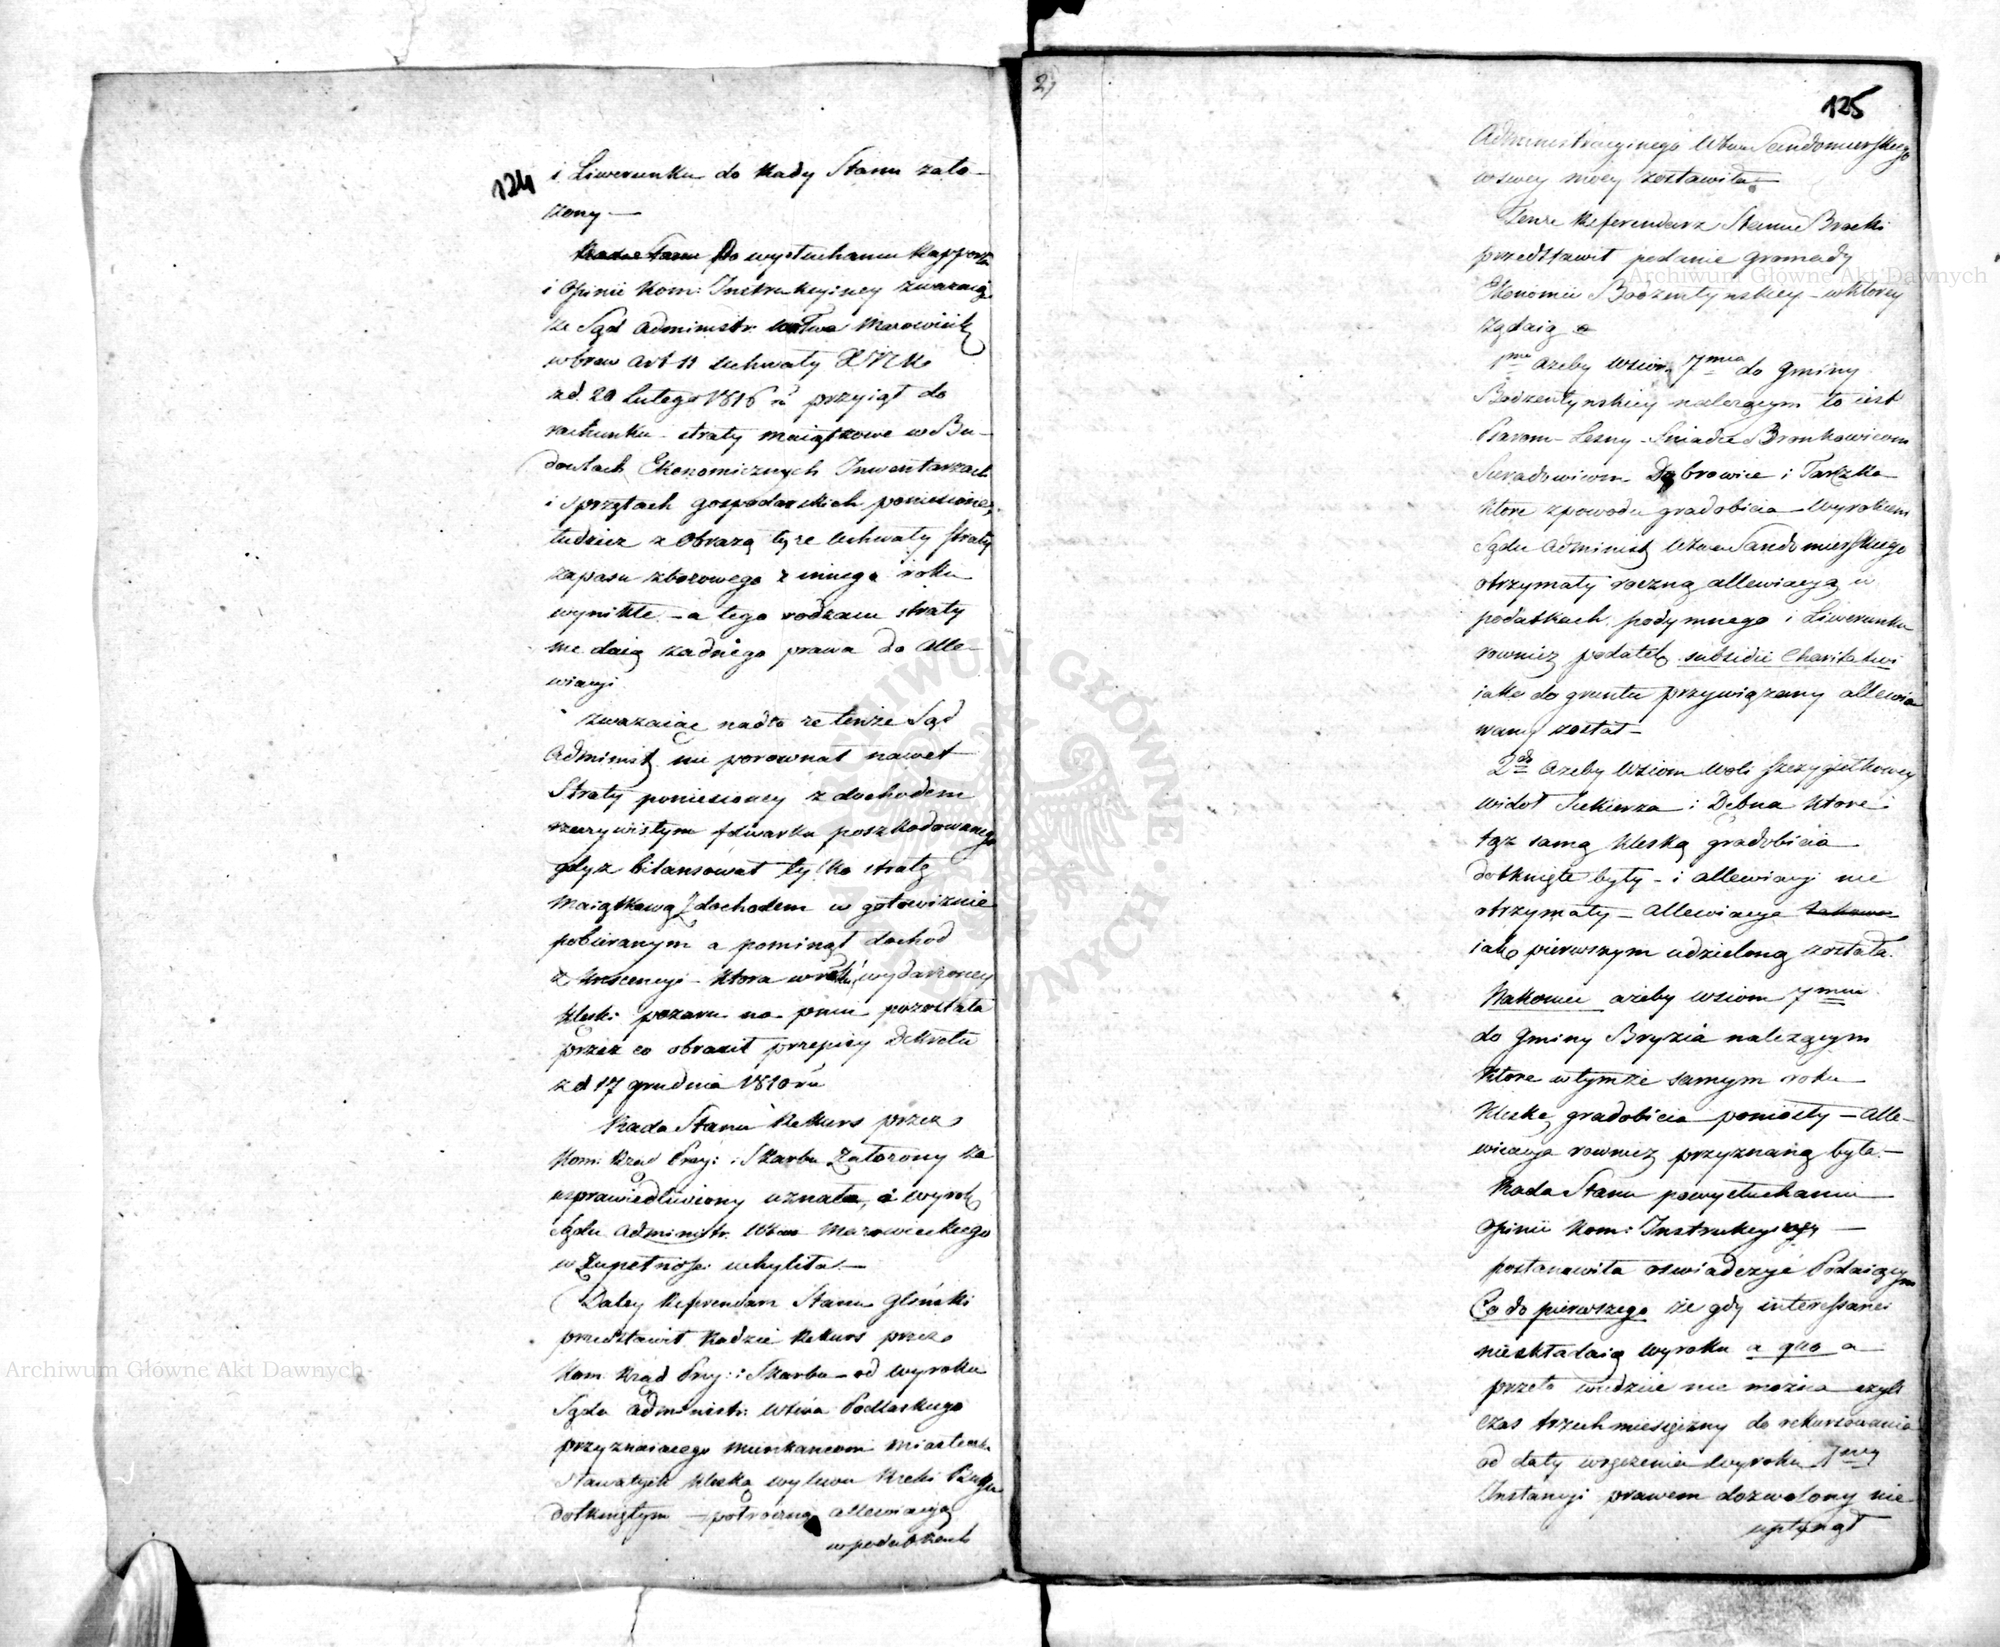 124
i Liwerunku do Rady Stanu zało-
żony —
Rada Stanu Po wysłuchaniu Rapportu
i Opinii Kom: Instrukcyiney zważaiąc
że Sąd Administr. Wdztwa Mazowieck
wbrew Art 11 Uchwały
z d. 20 Lutego 1816 r. przyiął do
rachunku straty maiątkowe w Bu-
dowlach Ekonomicznych Inwentarzach
i sprzętach gospodarskich poniesione,
tudzież z Obrazą teyże Uchwały straty
zapasu zbożowego z innego roku
wynikłe — a tego rodzaiu straty
nie daią żadnego prawa do Alle-
wiacyi
Zważaiąc nadto że tenże Sąd
Administ. nie porownał nawet
Straty poniesioney z dochodem
rzeczywistym folwarku poszkodowanego
gdyż bilansował tylko stratę
Maiątkową z dochodem w gotowiźnie
pobieranym a pominął dochod
z krescencyi — ktora w roku wydarzoney
klęski pożaru na pniu pozostała
przez co obraził przepisy Dekretu
z d 17 grudnia 1810 r.
Rada Stanu Rekurs przez
Kom: Rząd Przy: i Skarbu Założony za
usprawiedliwiony uznała, a wyrok
Sądu Administr. Wdztwa Mazowieckiego
w Zupełności uchyliła. —
Daley Referendarz Stanu Gliński
przedstawił Radzie Rekurs przez
Kom. Rząd Przy: i Skarbu — od wyroku
Sądu Administr. Wdztwa Podlaskiego
przyznaiącego mieszkańcom Miasteczka
Sławatycz klęską wylewu Rzeki Bugu
dotkniętym — połroczną allewiacyą
w podatkach
2)
125
Administracyinego Wdztwa Sandomierskiego
w swey mocy zostawiła —
Tenże Referendarz Stanu Brocki
przedstawił podanie gromady
Ekonomii Bodzentynskiey — w ktorey
żądaią
1mo Ażeby wsiom 7miu do Gminy
Bodzentynskiey należącym to iest
Psarom — Leśny — Śniadce Bronkowicom
Sieradowicom Dąbrowie i Tarczka
ktore z powodu gradobicia Wyrokiem
Sądu Administ. Wdztwa Sandomierskiego
otrzymały roczną allewiacyą w
podatkach podymnego i Liwerunku
rownież podatek subsidii Charitativi
iako do gruntu przywiązany allewio
wany został —
2do Ażeby Wsiom Woli Szczygiełkowey
Wideł Jeziorka i Dębna ktore
tąż samą klęską gradobicia
dotknięte były — i allewiacyi nie
otrzymały — Allewiacya takowa
iak pierwszym udzieloną została.
Nakoniec ażeby wsiom 7miu
do Gminy Bryzia należącym
ktore w tymże samym roku
klęskę gradobicia poniosły — Alle-
wiacya rownież przyznaną była. —
Rada Stanu po wysłuchaniu
Opinii Kom: Instrukcyiney —
postanowiła oswiadczyć Podaiącym
Co do pierwszego że gdy interessanci
nieskładaią wyroku a quo a
przeto widzieć nie można czyli
czas trzechmiesięczny do rekursowania
od daty wręczenia wyroku 1wszey
Instancyi prawem dozwolony nie
upłynął